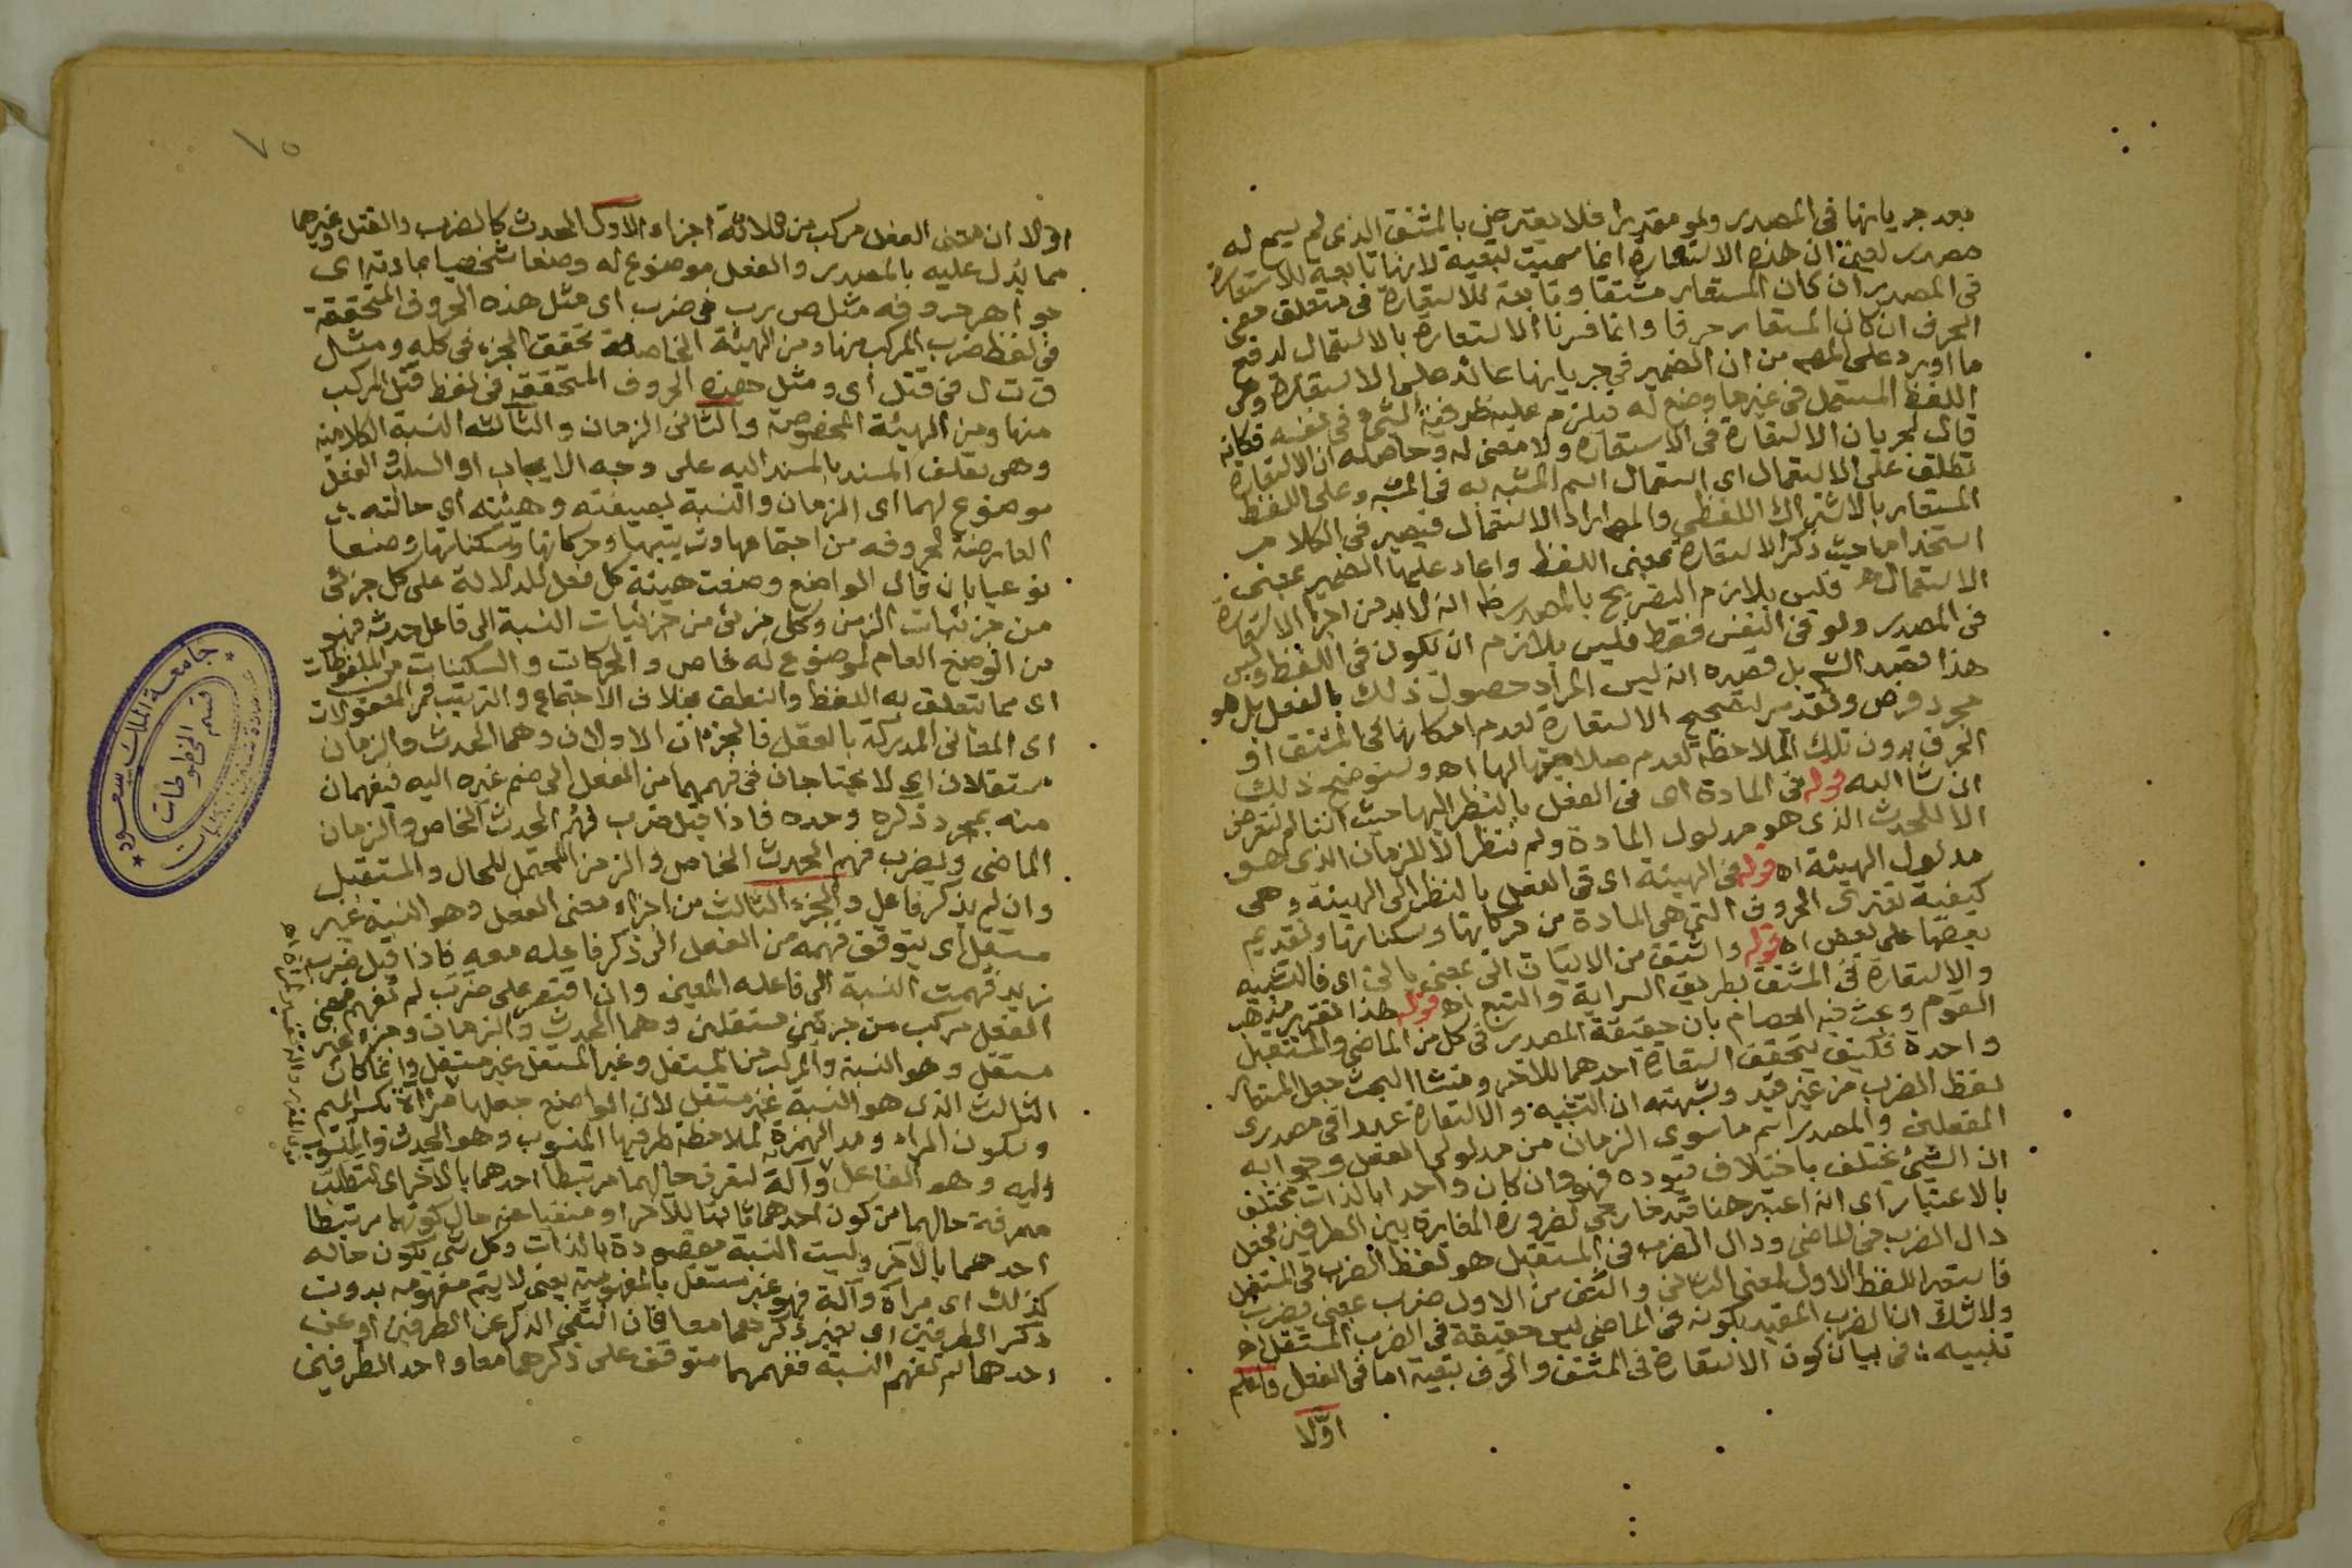 بعد جريانها في المصدر ولو مقدرا فلا يعترض بالمشتق الذي لم يسمع له
مصدر يعني ان هذه الاستعارة انما سميت تبعية لانها تابعة للاستعارة
في المصدر ان كان المستعار مشتقا وتابعة للاستعارة في متعلق معنى
الحرف ان كان المستعار حرفا وانما فسرنا الاستعارة بالاستعمال لدفع
ما اورد على المص من ان الضمير في جريانها عائد على الاستعارة وهي
اللفظ المستعمل في غير ما وضع له فيلزم عليه ظرفية الشئ في نفسه فكانه
قال لجريان الاستعارة في الاستعارة ولا معنى له وحاصله ان الاستعارة
تطلق على الاستعمال اي استعمال اسم المشبه به في المشبه وعلى اللفظ
المستعار بالاشتراك اللفظي والمص اراد الاستعمال فيصير في الكلام
استخداما حيث ذكر الاستعارة بمعنى اللفظ واعاد عليها الضمير بمعنى
الاستعمال اه فليس بلازم التصريح بالمصدر ظ انه لا بد من اجراء الاستعارة
في المصدر ولو في النفس فقط فليس بلازم ان يكون في اللفظ وليس
هذا قصد الش بل قصده انه ليس المراد حصول ذلك بالفعل بل هو
مجرد فرض وتقدير لتصحيح الاستعارة لعدم امكانها في المشتق او
الحرف بدون تلك الملاحظة لعدم صلاحيتها لها اه وستوضح ذلك
ان شا الله قوله في المادة اي في الفعل بالنظر اليها حيث اننا لم نتعرض
الا للحدث الذي هو مدلول المادة ولم ننظر الا للزمان الذي هو
مدلول الهيئة اه قوله في الهيئة اي في الفعل بالنظر الى الهيئة وهي
كيفية تعتري الحروف التي هي المادة من حركاتها وسكناتها وتقديم
بعضها على بعض اه قوله واشتق من الاتيان اتى بمعنى ياتي اي فالتشبيه
والاستعارة في المشتق بطريق السراية والتبع اه قوله هذا تقرير مذهب
القوم وبحث فيه العصام بان حقيقة المصدر في كل من الماضي والمستقبل
واحدة فكيف يتحقق استعارة احدهما للاخر ومنشا البحث جعل المستعار
لفظ الضرب من غير قيد وشبهته ان التشبيه والاستعارة عبدا في مصدري
الفعلين والمصدر اسم ما سوى الزمان من مدلولي الفعل وجوابه
ان الشيئ يختلف باختلاف قيوده فهو وان كان واحدا بالذات مختلف
بالاعتبار اي انه اعتبر هنا قيد خارجي لضرورة المغايرة بين الطرفين فجعل
دال الضرب في الماضي ودال الضرب في المستقبل هو لفظ الضرب في المستقبل
فاستعير اللفظ الاول لمعنى الثاني واشتق من الاول ضرب بمعنى يضرب
ولا شك ان الضرب المقيد بكونه في الماضي ليس حقيقة في الضرب المستقبل اه
تنبيه في بيان كون الاستعارة في المشتق والحرف تبعية اما في الفعل فاعلم
اوّلا
٧٥
اولا ان معنى الفعل مركب من ثلاثة اجزاء الاول الحدث كالضرب والقتل وغيرهما
مما يدل عليه بالمصدر والفعل موضوع له وضعا شخصيا بمادته اي
جواهر حروفه مثل ض ر ب في ضرب اي مثل هذه الحروف المتحققة
في لفظ ضرب المركب منها ومن الهيئة الخاصة تحقق الجزء في كله ومثل
ق ت ل في قتل اي ومثل هذه الحروف المتحققة في لفظ قتل المركب
منها ومن الهيئة المخصوصة والثاني الزمان والثالث النسبة الكلامية
وهي تعلق المسند بالمسند اليه على وجه الايجاب او السلب والفعل
موضوع لهما اي الزمان والنسبة بصيغته وهيئته اي حالته
العارضة لحروفه من اجتماعها وترتيبها وحركاتها وسكناتها وضعا
نوعيا بان قال الواضع وضعت هيئة كل فعل للدلالة على كل جزئي
من جزئيات الزمن وكل جزئي من جزئيات النسبة الى فاعل حدثه فهو
من الوضع العام لموضوع له خاص والحركات والسكنات من الملفوظات
اي مما يتعلق به اللفظ والنطق بخلاف الاجتماع والترتيب فمن المعقولات
اي المعاني المدركة بالعقل فالجزءان الاولان وهما الحدث والزمان
مستقلان اي لا يحتاجان في فهمهما من الفعل الى ضم غيره اليه فيفهمان
منه بمجرد ذكره وحده فاذا قيل ضرب فهم الحدث الخاص والزمان
الماضي ويضرب فهم الحدث الخاص والزمن المحتمل للحال والمستقبل
وان لم يذكر فاعل والجزء الثالث من اجزاء معنى الفعل وهو النسبة غير
مستقل اي يتوقف فهمه من الفعل الى ذكر فاعله معه فاذا قيل ضرب
زيد فهمت النسبة الى فاعله المعين وان اقتصر على ضرب لم تفهم فمعنى
الفعل مركب من جزئين مستقلين وهما الحدث والزمان وجزء غير
مستقل وهو النسبة والمركب من المستقل وغير المستقل غير مستقل وانما كان
الثالث الذي هو النسبة غير مستقل لان الواضع جعلها مرآة بكسر الميم
وسكون الراء ومد الهمزة لملاحظة طرفيها المنسوب وهو الحدث والمنسوب
اليه وهو الفاعل وآلة لتعرف حالهما مرتبطا احدهما بالآخر اي لتطلب
معرفة حالهما من كون احدهما ثابتا للآخر او منفيا عنه حال كونهما مرتبطا
احدهما بالآخر وليست النسبة مقصودة بالذات وكل شئ يكون حاله
كذلك اي مرآة وآلة فهو غير مستقل بالمفهومية يعني لا يتم مفهومه بدون
ذكر الطرفين اي بغير ذكرهما معا فان انتفى الذكر عن الطرفين او عن
احدهما لم تفهم النسبة ففهمهما متوقف على ذكرهما معا واحد الطرفين
جامعة الملك سعود
قسم المخطوطات